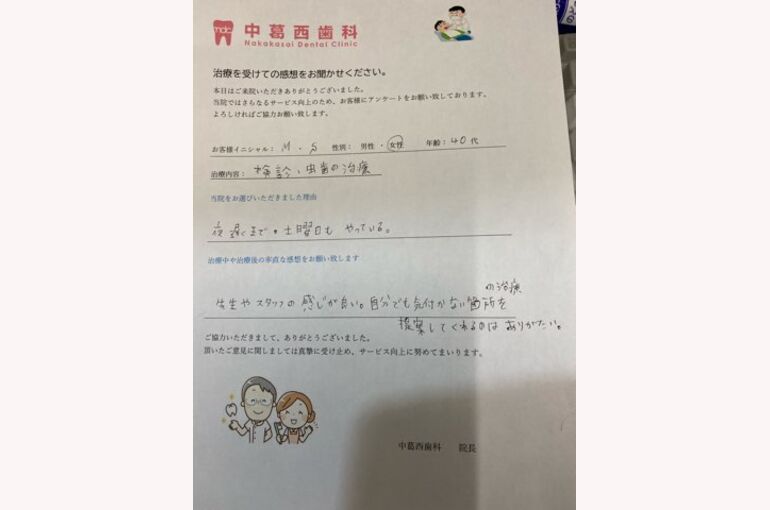 mdc
中葛西歯科
Nakakasai Dental Clinic
治療を受けての感想をお聞かせください。
本日はご来院いただきありがとうございました。
当院ではさらなるサービス向上のため、お客様にアンケートをお願い致しております。
よろしければご協力お願い致します。
お客様イニシャル： M ・ S 性別： 男性 ・ 女性 年齢：40代
治療内容： 検診、虫歯の治療
当院をお選びいただきました理由
夜遅くまで・土曜日も やっている。
治療中や治療後の率直な感想をお願い致します
先生やスタッフの感じが良い。自分でも気付かない箇所を
の治療
提案してくれるのは ありがたい。
ご協力いただきまして、ありがとうございました。
頂いたご意見に関しましては真摯に受け止め、サービス向上に努めてまいります。
中葛西歯科 院長